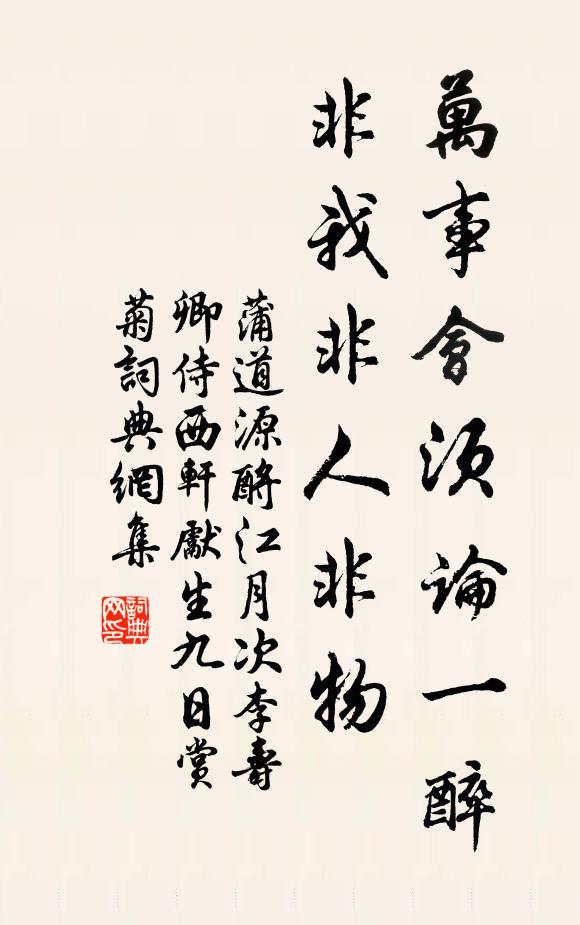 萬事會須論一醉
非我非人非物
蒲道源酹江月次李壽
卿侍西軒獻生九日賞
菊詞典網集
詞典网印